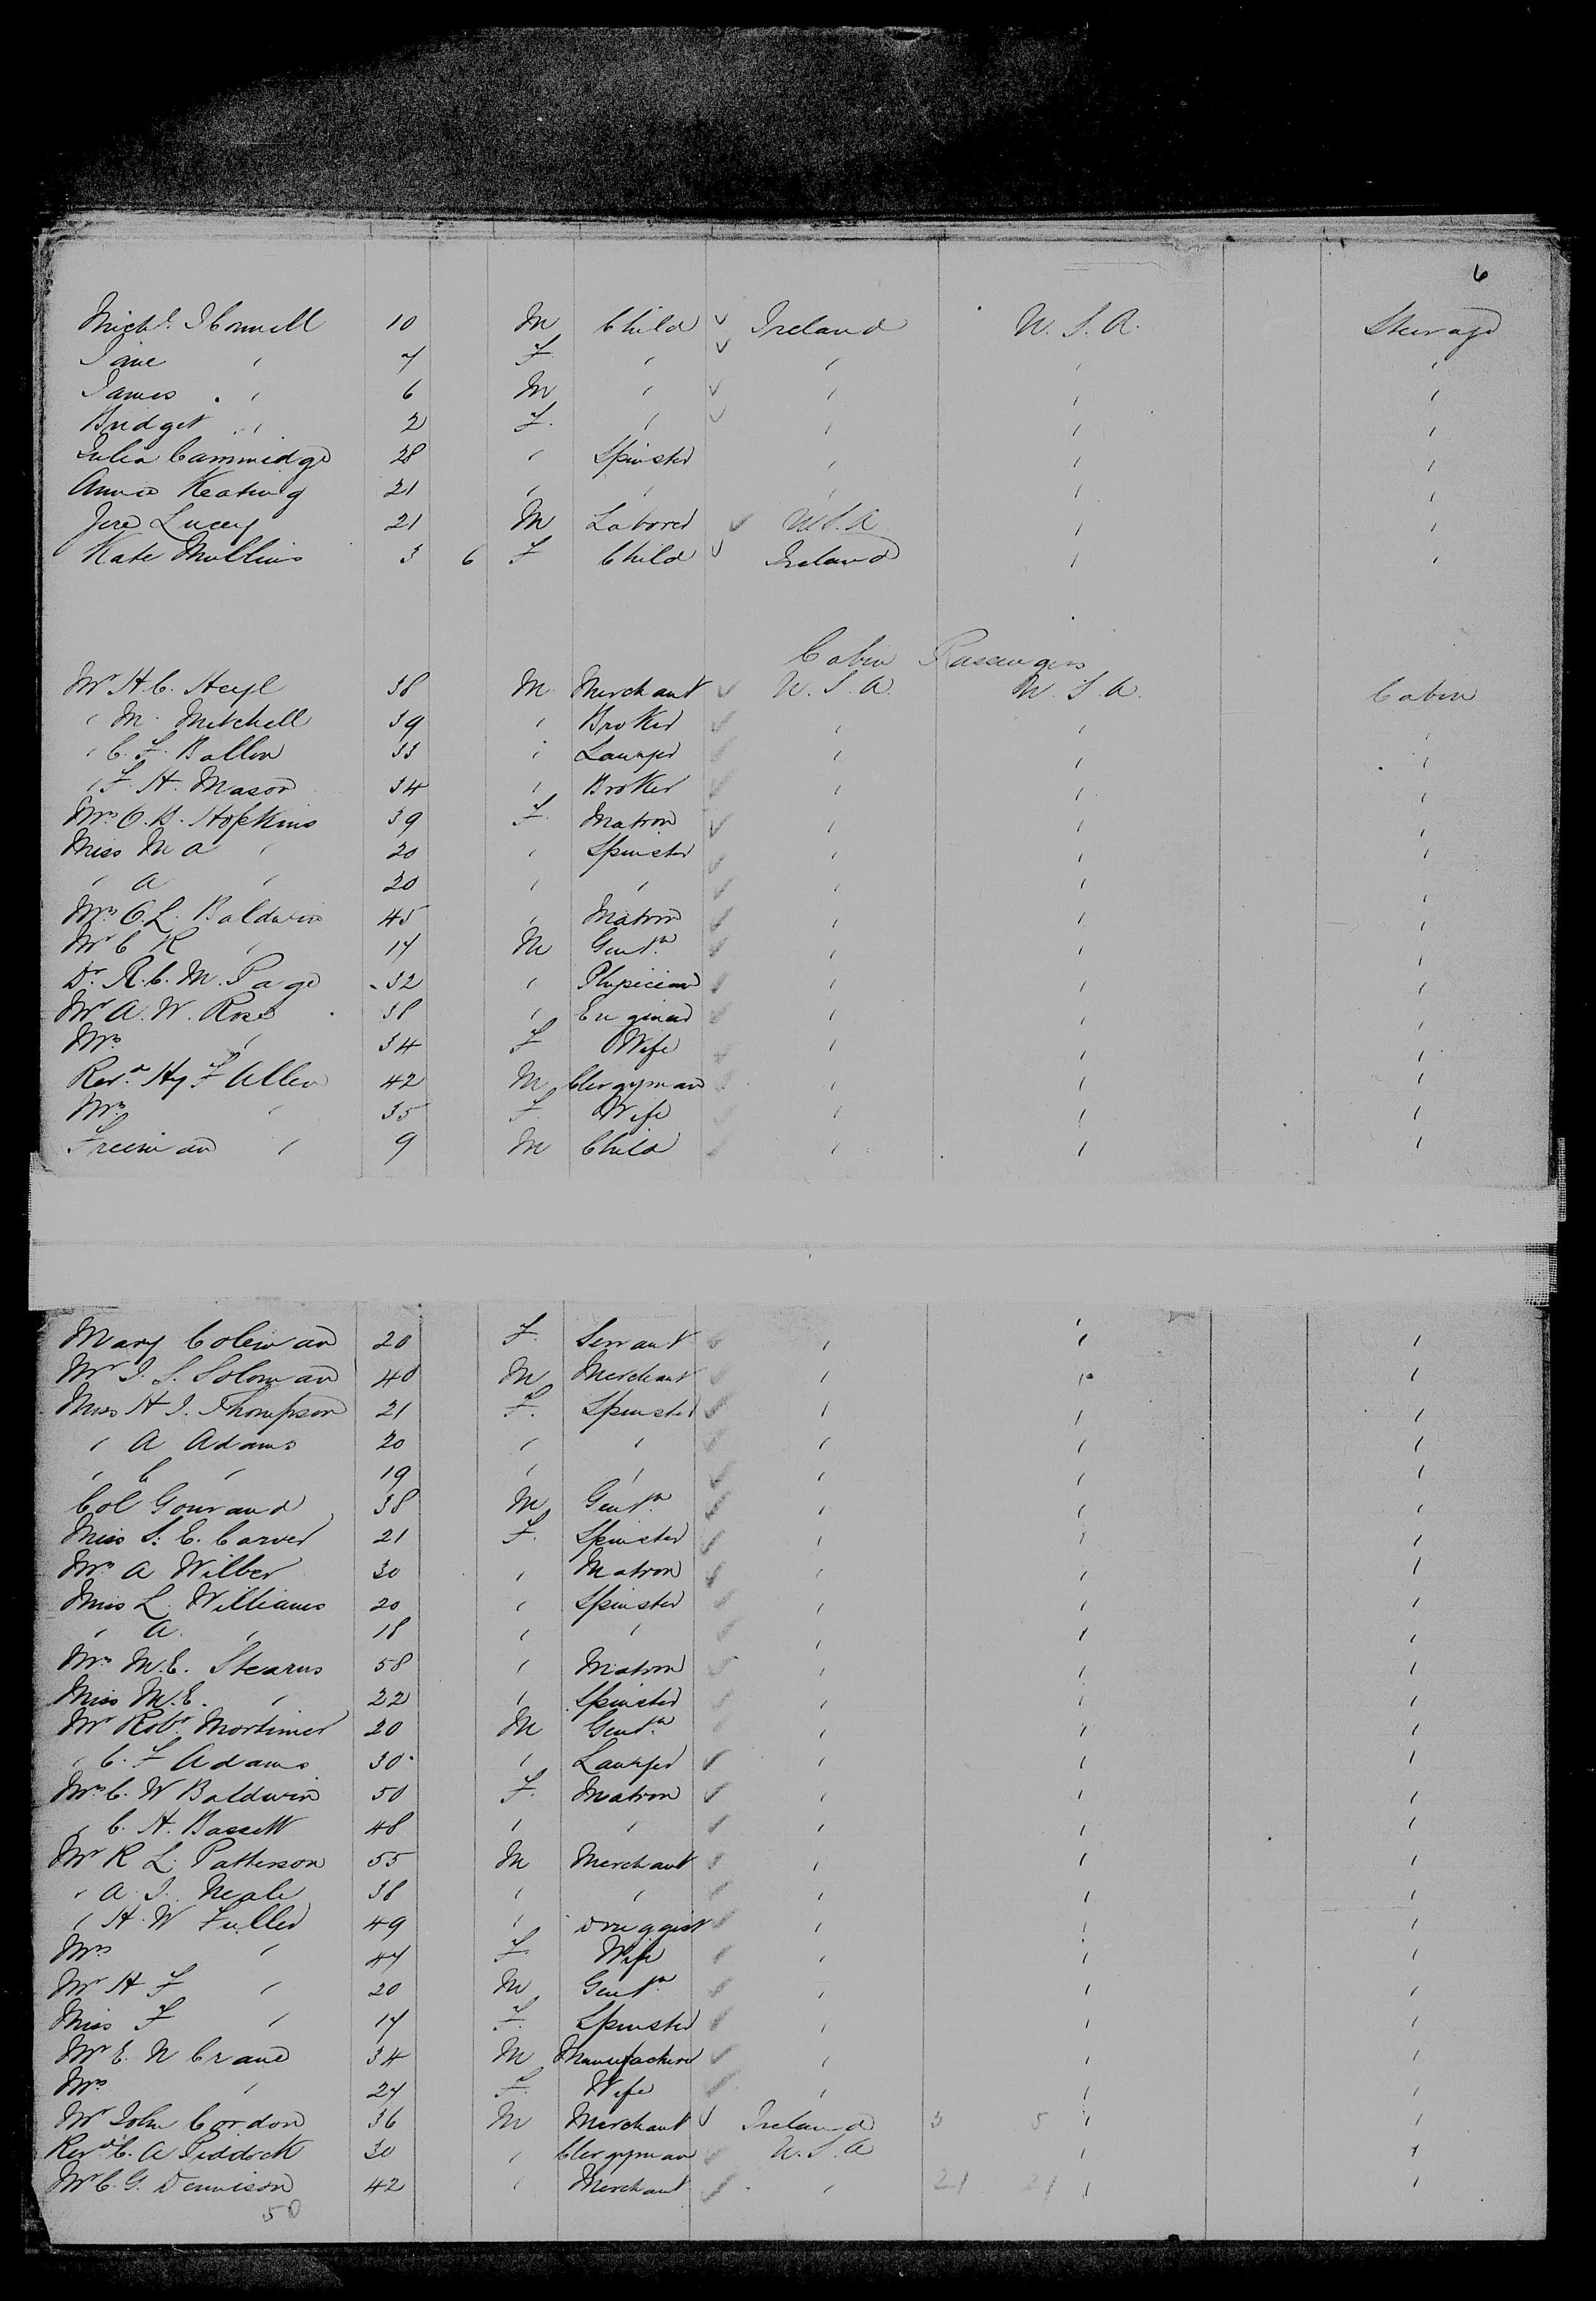 6
Mich.l I Connell 10 M Child ✓ Ireland U.S.A. Steerage
Jane " 7 F " ✓ " " "
James " 6 M " ✓ " " "
Bridget " 2 F. " ✓ " " "
Julia Cammidge 28 " Spinster " " "
Annie Keating 21 " " " " "
Jere Lucey 21 M Laborer ✓ U.S.A " "
Kate Mullins 3 6 F Child ✓ Ireland " "
Cabin Passengers
Mr H.C. Heyl 38 M Merchant ✓ U.S.A. U.S.A. Cabin
" M. Mitchell 39 " Broker ✓ " " "
" C.F. Ballou 33 " Lawyer ✓ " " "
" F.H. Mason 34 " Broker ✓ " " "
Mrs O.B. Hopkins 39 F. Matron ✓ " " "
Miss M A " 20 " Spinster ✓ " " "
" A " 20 " " ✓ " " "
Mrs O.L. Baldwin 45 " Matron ✓ " " "
Mr C R " 17 M Gentn ✓ " " "
Dr. R.C.M. Page 32 " Physician ✓ " " "
Mr A.W. Rose 38 " Engineer ✓ " " "
Mrs " 34 F Wife ✓ " " "
Revd Hy F Allen 42 M Clergyman ✓ " " "
Mrs " 35 F Wife ✓ " " "
Freeman " 9 M Child ✓ " " "
Mary Coleman 20 F. Servant ✓ " " "
Mr J.S. Soloman 40 M Merchant ✓ " " "
Miss H J. Thompson 21 F. Spinster ✓ " " "
" A Adams 20 " " ✓ " " "
" C " 19 " " ✓ " " "
Col Gouraud 38 M Gentn ✓ " " "
Miss S.E. Carver 21 F. Spinster ✓ " " "
Mrs A Wilber 30 " Matron ✓ " " "
Miss L. Williams 20 " Spinster ✓ " " "
" A. " 18 " " ✓ " " "
Mrs M.E. Stearns 58 " Matron ✓ " " "
Miss M.E. " 22 " Spinster ✓ " " "
Mr Robt Mortimer 20 M Gentn ✓ " " "
" C.F Adams 30 " Lawyer ✓ " " "
Mrs C.W Baldwin 50 F. Matron ✓ " " "
" C.H. Bassett 48 " " ✓ " " "
Mr R L. Patterson 55 M Merchant ✓ " " "
" A.J. Neale 38 " " ✓ " " "
" H.W Fuller 49 " Druggist ✓ " " "
Mrs " 47 F Wife ✓ " " "
Mr H F " 20 M Gentn ✓ " " "
Miss F " 17 F. Spinster ✓ " " "
Mr E.N Crane 34 M Manufacturer ✓ " " "
Mrs " 27 F. Wife ✓ " " "
Mr John Cordon 36 M Merchant ✓ Ireland 5 5 " "
Revd C.A Piddock 30 " Clergyman ✓ U.S.A " "
Mr C.G. Dennison 42 " Merchant ✓ " 21 21 " "
50